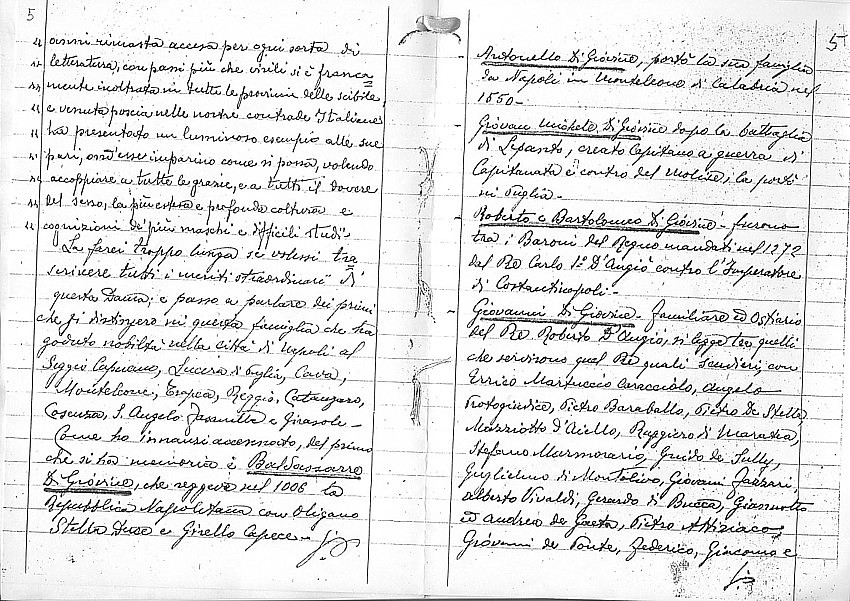 5
" anni rimasta accesa per ogni sorta di
" letteratura, con passi più che virili si è franca=
" mente inoltrata in tutte le provincie dello scibile,
" e venuta poscia nelle nostre contrade Italiane
" ha presentato un luminoso esempio alle sue
" pari, ond'esse imparino come si possa, volendo
" accoppiare a tutte le grazie, e a tutti il dovere
" del sesso, la più estesa e profonda coltura e
" cognizioni de' più maschi e difficili studi"
La farei troppo lunga se volessi tra
scrivere tutti i meriti straordinari di
questa Dama; e passo a parlare dei primi
che si distinsero in questa famiglia che ha
goduto nobiltà nella città di Napoli al
Seggio Capuano, Lucera di Puglia, Cava,
Monteleone, Tropea, Reggio, Catanzaro,
Cosenza, S. Angelo Fasanella e Girasole -
Come ho innanzi accennato, del primo
che si ha memoria è Baldassarre
Di Giovine, che reggeva nel 1006 la
Repubblica Napoletana con Oligano
Stella Duce e Girello Capece -
5
Antonello Di Giovine, portò la sua famiglia
da Napoli in Monteleone di Calabria nel
1550 -
Giovan Michele Di Giovine dopo la battaglia
di Lepanto, creato Capitano a guerra di
Capitanata e contro del Molise, la portò
in Puglia -
Roberto e Bartolomeo Di Giovine - furono
tra i Baroni del Regno mandati nel 1272
dal Re Carlo 1° D'Angiò contro l'Imperatore
di Costantinopoli -
Giovanni Di Giovine - familiare ed Ostiario
del Re Roberto D'Angiò, si legge tra quelli
che servirono quel Re quali Scudieri, con
Errico Martuccio Caracciolo, Angelo
Protogiudice, Pietro Baraballo, Pietro De Stella,
Mazziotto d'Aiello, Ruggiero di Maratea,
Stefano Marmorario, Guido de Sully,
Guglielmo di Montolivo, Giovanni Fazzari,
Alberto Vivaldi, Gerardo di Bucca, Giannotto
ed Andrea de Gaeta, Pietro
Giovanni de Ponte, Federico, Giacomo e